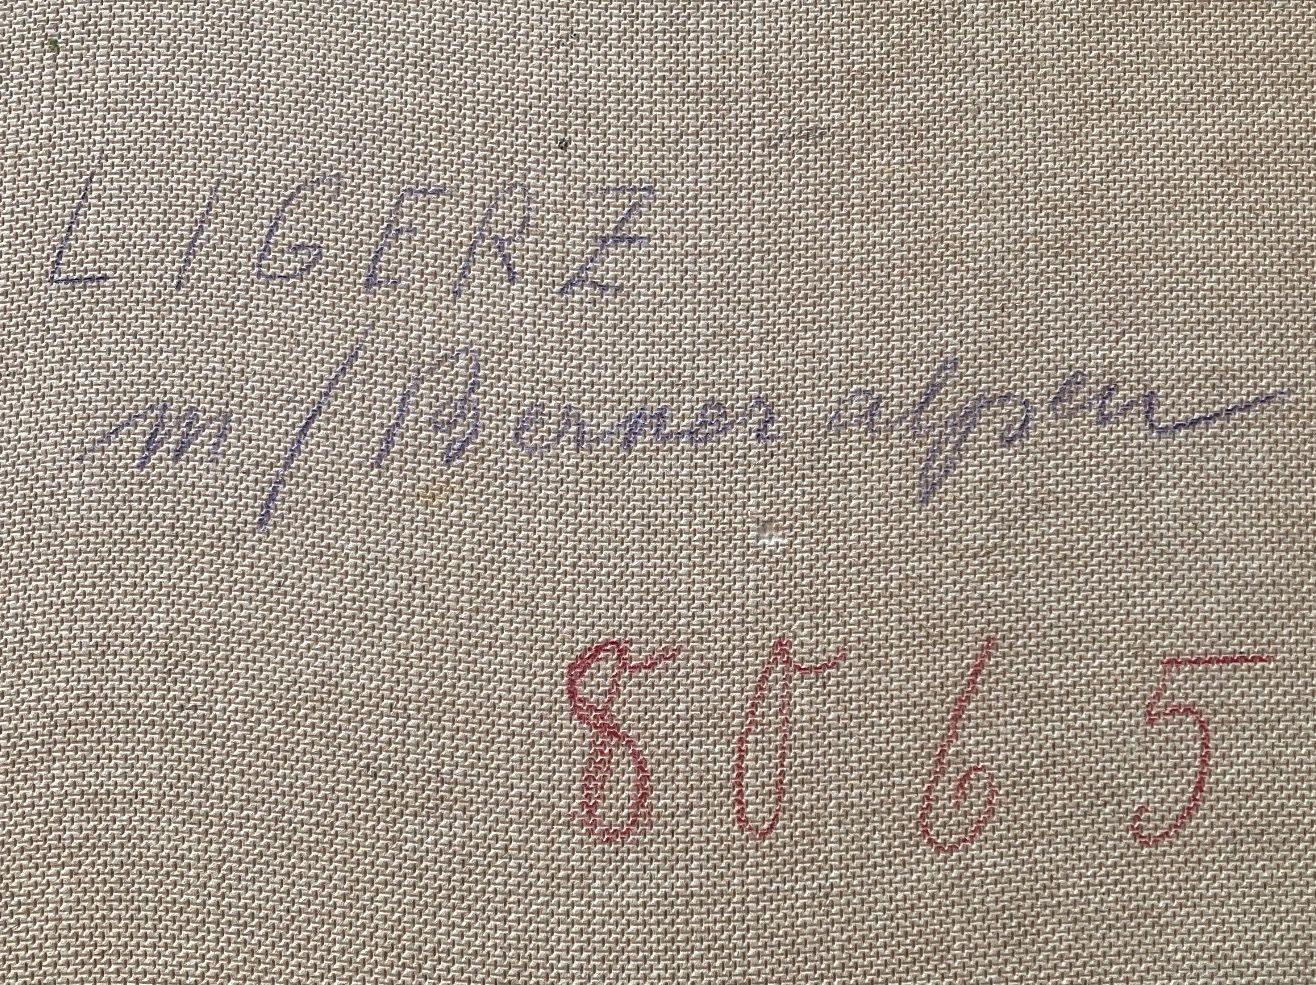 LIGERZ
m/Berner alpen
8065